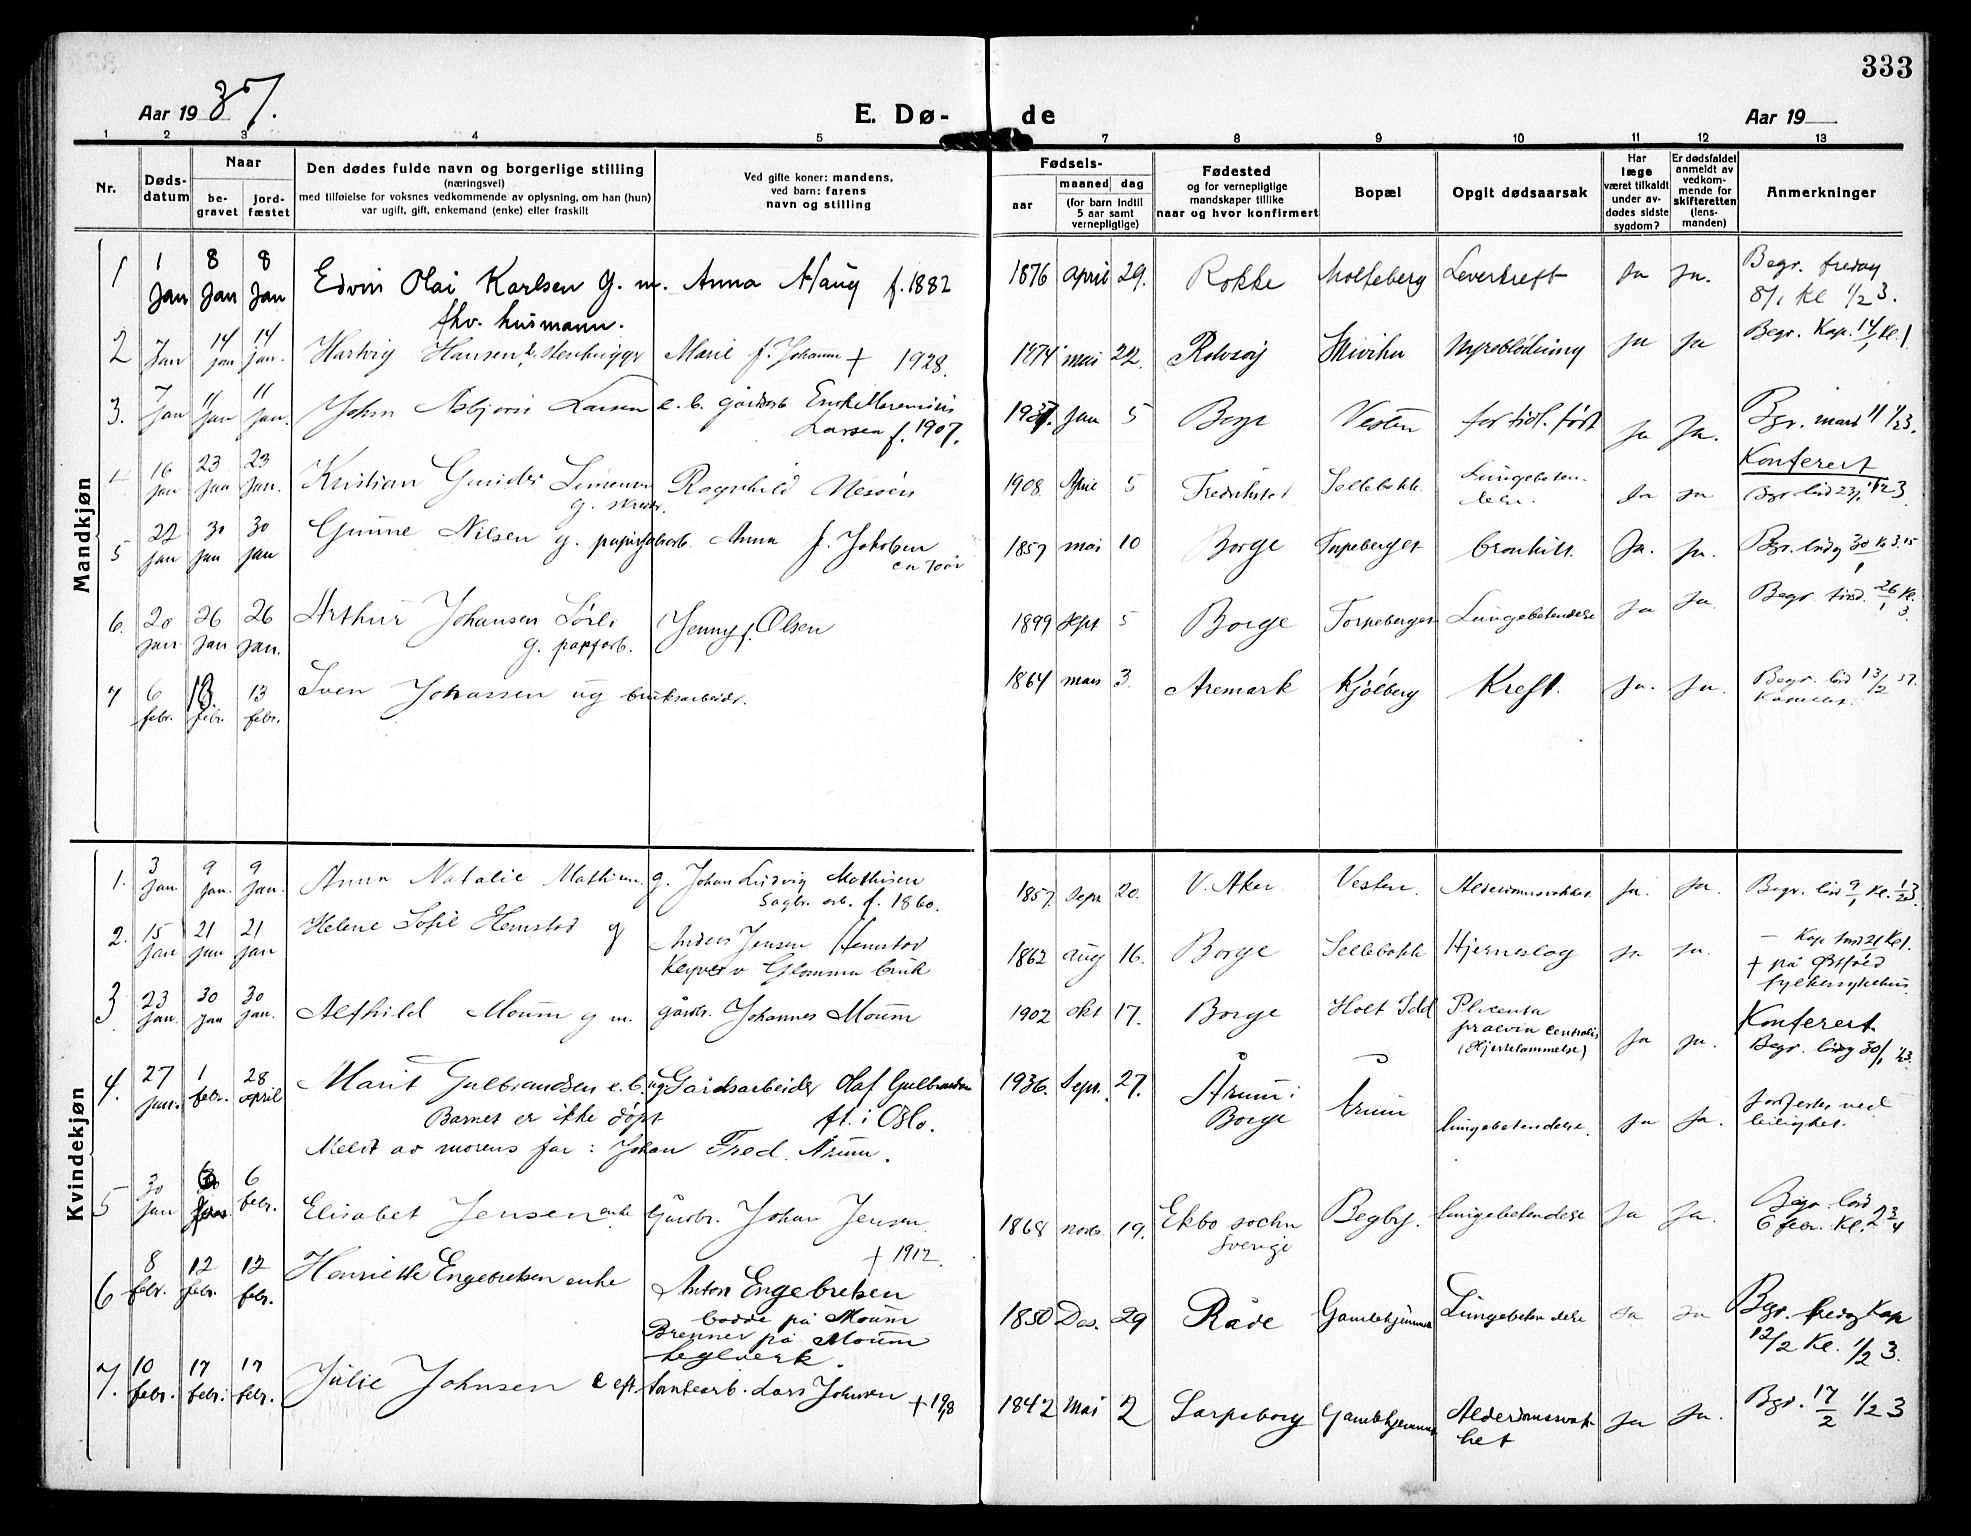 333
Aar 1937.
E. Dø-
de
Aar 19
1 2 3 4 5 7 8 9 10 11 12 13
Nr.
Døds-
datum
Naar
be-
gravet
jord-
fæstet
Den dødes fulde navn og borgerlige stilling
(næringsvei)
med tilføielse for voksnes vedkommende av oplysning, om han (hun)
var ugift, gift, enkemand (enke) eller fraskilt
Ved gifte koner: mandens,
ved barn: farens
navn og stilling
Fødsels-
aar
maaned
dag
(for barn indtil
5 aar samt
vernepligtige)
Fødested
og for vernepligtige
mandskaper tillike
naar og hvor konfirmert
Bopæl
Opgit dødsaarsak
Har
læge
været tilkaldt
under av-
dødes sidste
sygdom?
Er dødsfaldet
anmeldt av
vedkom-
mende for
skifteretten
(lens-
manden)
Anmerkninger
Mandkjøn
1 1 Jan 8 Jan 8 Jan Edvin Olai Karlsen g. m. Anna Haug f. 1882 1876 april 29. Rokke Molteberg Leverkreft Ja Ja. Begr. fredag
fhv. husmann. 8/1 Kl 1/2 3.
2 Jan 14 jan 14 jan. Hartvig Hansen Marie f. Johansen + 1928. mai 22. Rolvsøy Nyreblødning ja ja Begr. Kap. 14/1 Kl. 1
3. 7 jan 11 jan 11 jan. John Asbjørn Larsen e. b. gårdsarb 1937. jan 5 Borge Vesten for tidl. født ja ja. Bgr. 11/1 1/2 3.
Larsen f. 1907.
4 16 jan 23 jan 23 jan. Kristian Simensen Ragnhild 1908 5 Fredrikstad Sellebakk Lungebeten- Ja ja Konferert
g. delse. Bgr. lørd 23/1 1/2 3
5 22 jan 30 jan 30 jan Gunne Nilsen g. Anna f. Jakobsen 1857 mai 10 Borge Torpeberget bronkitt. Ja. ja. Bgr. lørdg 30/1 Kl 3.15
ca 70 år
6. 20 jan 26 jan 26 jan. Arthur Johansen Sørli Jenny f. Olsen 1899 sept 5 Borge Torpeberget Lungebetendelse ja ja. Begr. tirsd. 26/1 Kl. 3.
g. papfarb.
7 6 febr. 13. febr. 13 febr. Sven Johassen ug bruksarbeidr. 1864 mars 3. Aremark Kjølberg Kreft. ja. ja. Begr. lørd 13/2 37.
Kapellet.
Kvindekjøn
1. 3 jan 9 jan. 9 jan. Anna Natalie Mathisen g. Johan Ludvig Mathisen 1857 sept 20. V. Aker Vesten. Alderdomssvakhet. ja. ja. Begr. lørd 9/1 Kl. 1/2 3.
Sagbr. arb. f. 1860.
2. 15 jan 21 jan 21 jan Helene Sofie Hemstad g Anders Jensen Hemstad 1862 aug 16. Borge Sellebakk Hjerneslag ja ja. — Kap 21/1 Kl 1.
v Glomma bruk + på Østfold
fylkessykehus
3 23 jan. 30 jan 30 jan. Alfhild Moum g m. gårdbr. Johannes Moum 1902 okt 17. Borge Holt Idd Placenta ja ja. Konferert
prævia centralis Begr. lørdg 30/1 1/2 3.
(Hjertelammelse)
4. 27 jan. 1 febr. 28 april Marit Gulbrandsen e. b. ug Gårdsarbeider Olaf Gulbrandsen 1936. Sept. 27. Årum i Årum lungebetendelse. ja ja. Jordfestes ved
Barnet er ikke døpt ft. i Oslo. Borge leilighet.
Meldt av morens far: Johan Fred. Årum.
5 30 jan 6 6 febr. Elisabet Jensen enke Gårdbr. Johan Jensen. 1868 novb. 19. Ekbo sochn Begby. lungebetendelse ja ja. Begr. lørd
+ 1912. Sverige 6 febr. Kl. 2 3/4
6 8 febr. 12 febr. 12 febr. Henriette Engebretsen enke Anton Engebretsen 1850 Des. 29 Råde Gamlehjemmet Lungebetendelse ja ja Bgr. fredag Kap
bodde på Moum 12/2 Kl. 1/2 3.
Brenner på Moum
teglverk.
7. 10 febr. 17 febr. 17 febr. Julie Johnsen e eft tomtearb. Lars Johnsen + 1918 1842 Mai 2 Sarpsborg Gamlehjemmet Alderdomssvak- ja ja. Bgr. 17/2 1/2 3
het